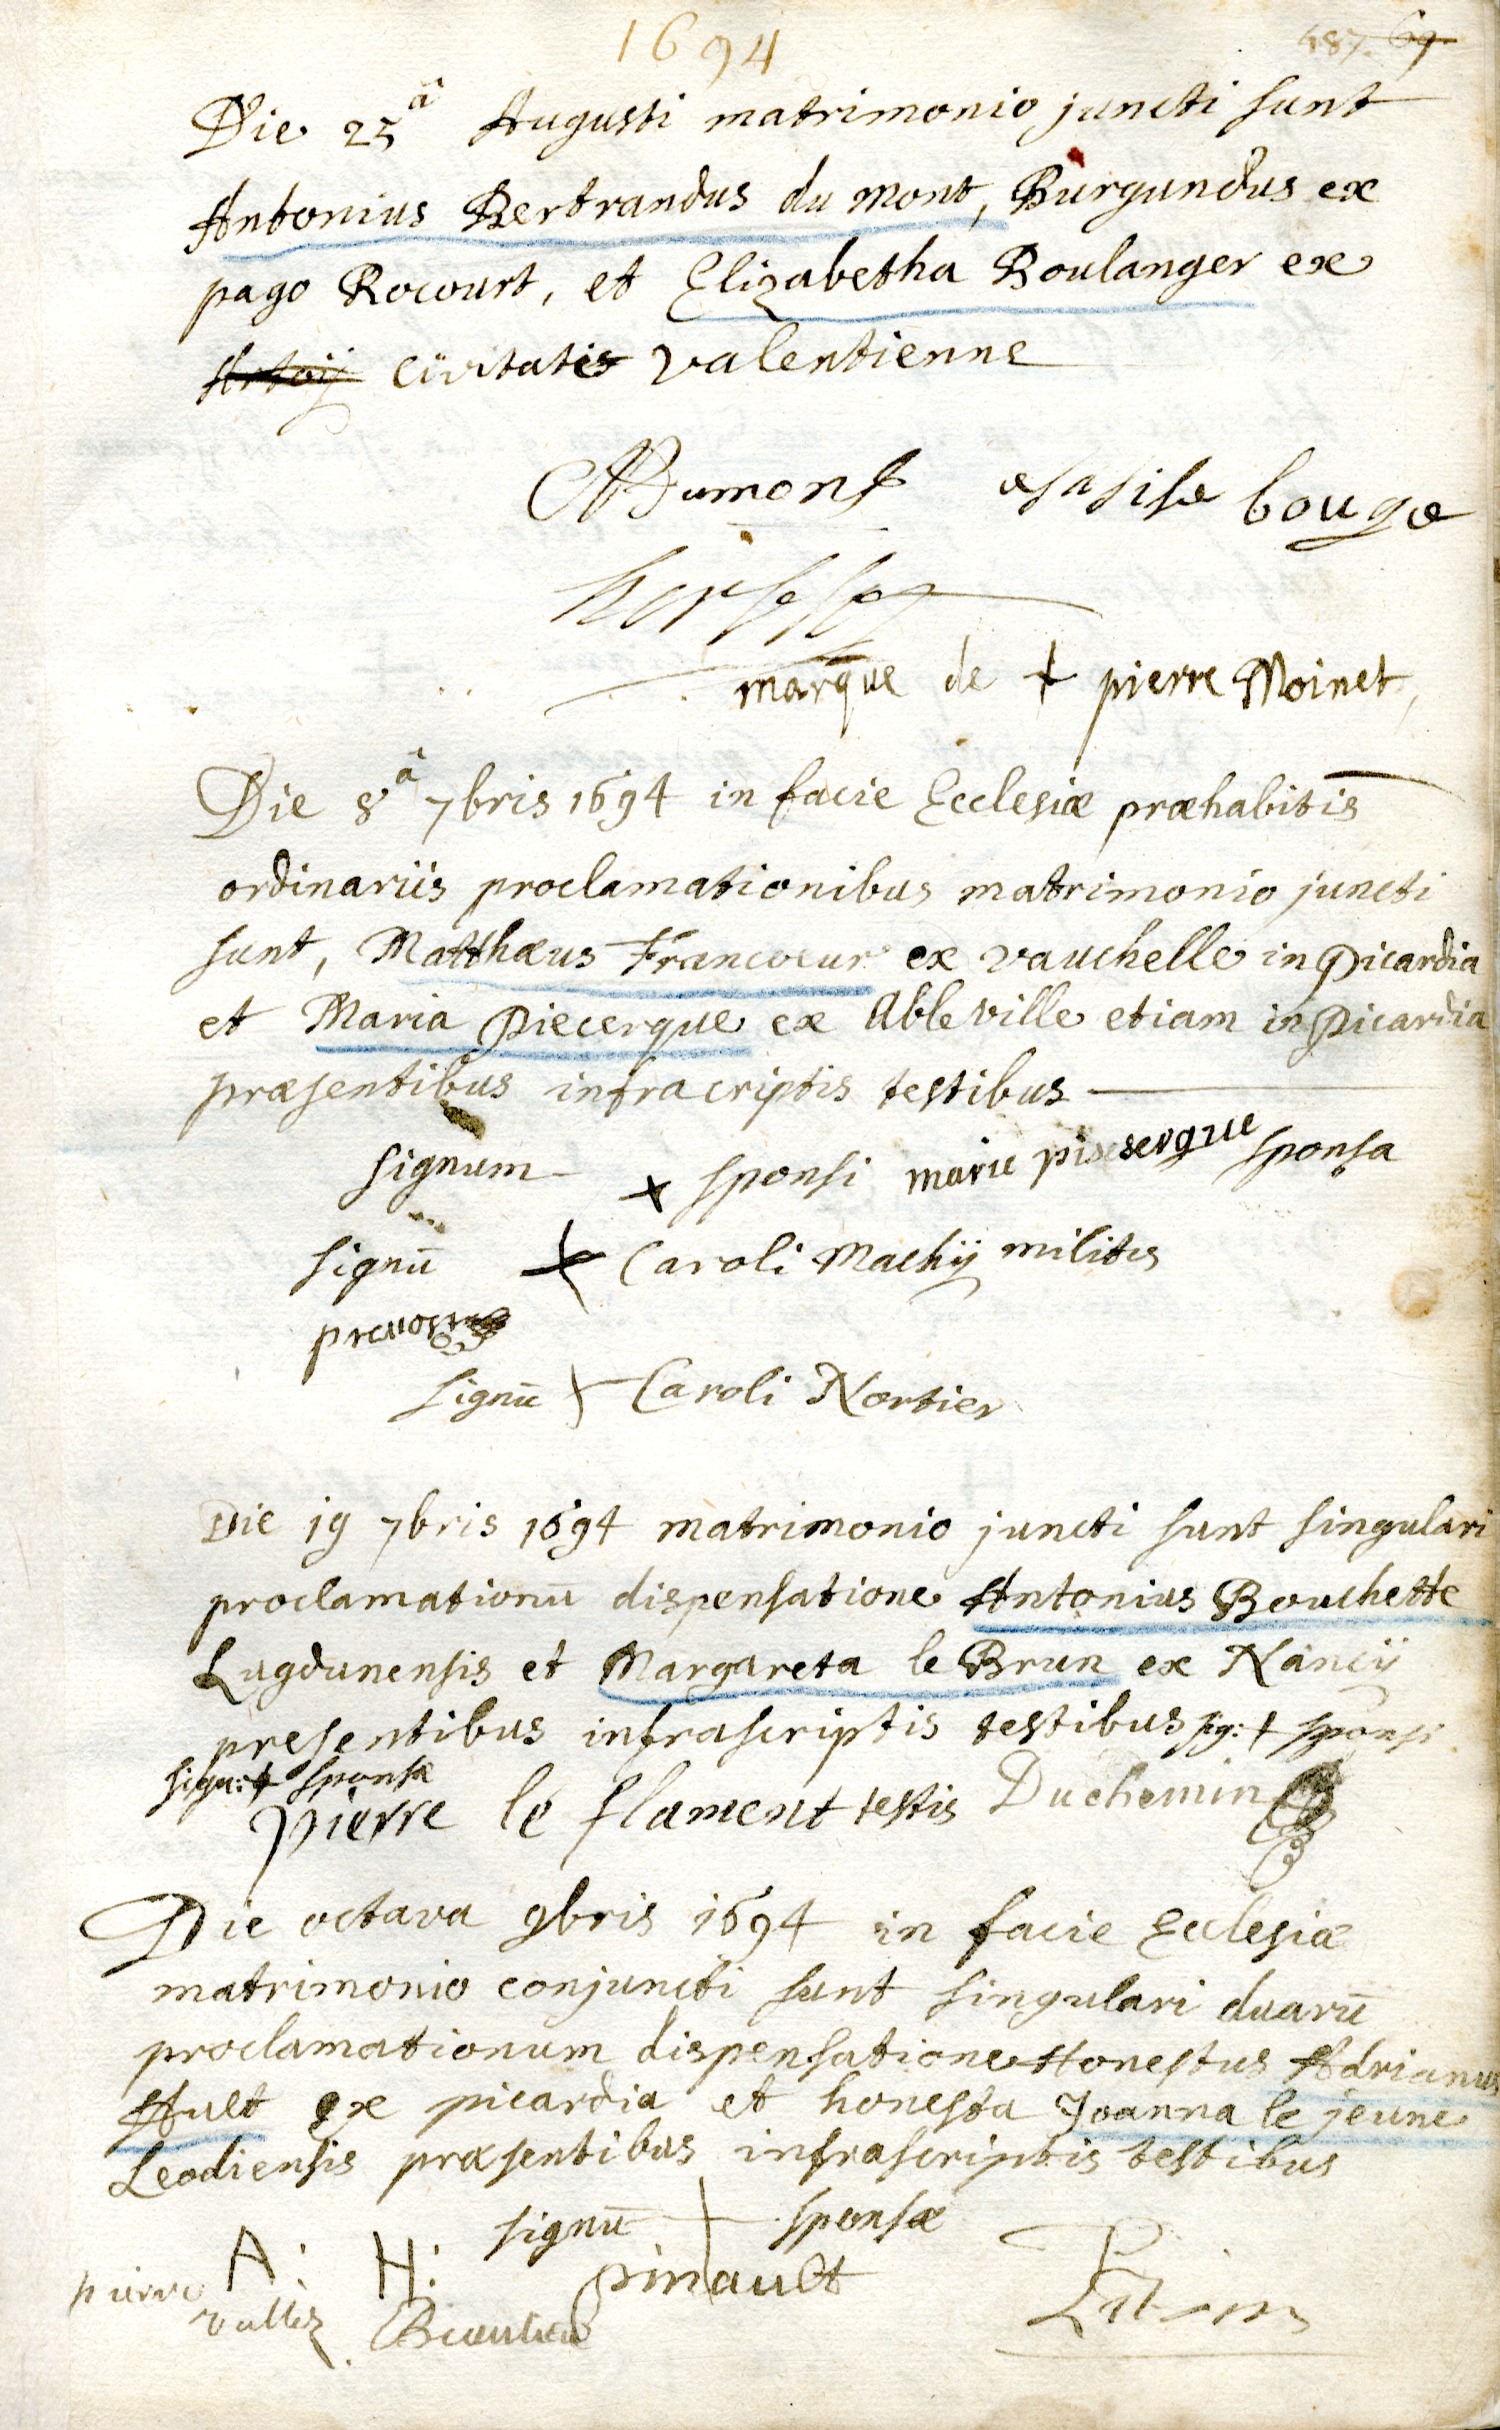 1694
487. 69.
Die 25â Augusti matrimonio juncti sunt
Antonius Bertrandus du mont, Burgundus ex
pago Rocourt, et Elizabetha Boulanger ex
Artoÿ civitatis valentienne
Dumont
marque de + pierre Moinet,
Die 8â 7bris 1694 in facie Ecclesiæ præhabitis
ordinariis proclamationibus matrimonio juncti
sunt, Matthæus Francoeur ex vauchelle in Picardia
et Maria Piecerque ex Ableville etiam in Picardia
præsentibus infracriptis testibus
signum x sponsi marie piesergue sponsa
signū + Caroli Machij militis
signū + Caroli Nortier
Die 19 7bris 1694 matrimonio juncti sunt singulari
proclamationū dispensatione Antonius Bouchette
Lugdunensis et Margareta le Brun ex Nancÿ
presentibus infrascriptis testibus sig: + sponsi
sign: + sponsæ
pierre le flament testis Duchemin
Die octava 9bris 1694 in facie Ecclesiæ
matrimonio conjuncti sunt singulari duarū
proclamationum dispensatione Honestus Adrianus
Ault ex picardia et honesta Joanna le jeune
Leodiensis præsentibus infrascriptis testibus
signū + sponsæ
A: H: pinault
pierre vallez